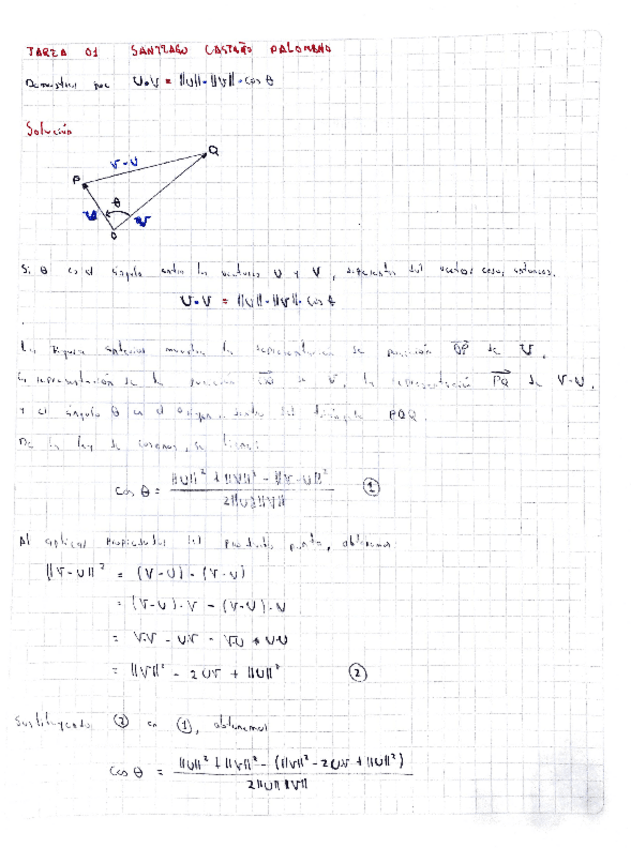 TAREA 01 SANTIAGO CASTAÑO PALOMINO
Demostrar que U•V = ||U||•||V||•cos θ
Solución
V-U
P
Q
θ
U
V
O
Si θ es el ángulo entre los vectores U y V, diferentes del vector cero, entonces.
U•V = ||U||•||V||•cos θ
La figura anterior muestra la representación de posición OP de U,
la representación de la posición de V, la representación PQ de V-U,
y el ángulo θ en el origen, dentro del triángulo POQ.
De la ley de cosenos, se tiene:
cos θ = ||U||² + ||V||² - ||V-U||² / 2||U||||V|| ①
Al aplicar propiedades del producto punto, obtenemos:
||V-U||² = (V-U)•(V-U)
= (V-U)•V - (V-U)•U
= V•V - U•V - V•U + U•U
= ||V||² - 2UV + ||U||² ②
Sustituyendo ② en ①, obtenemos
cos θ = ||U||² + ||V||² - (||V||² - 2U•V + ||U||²) / 2||U||||V||